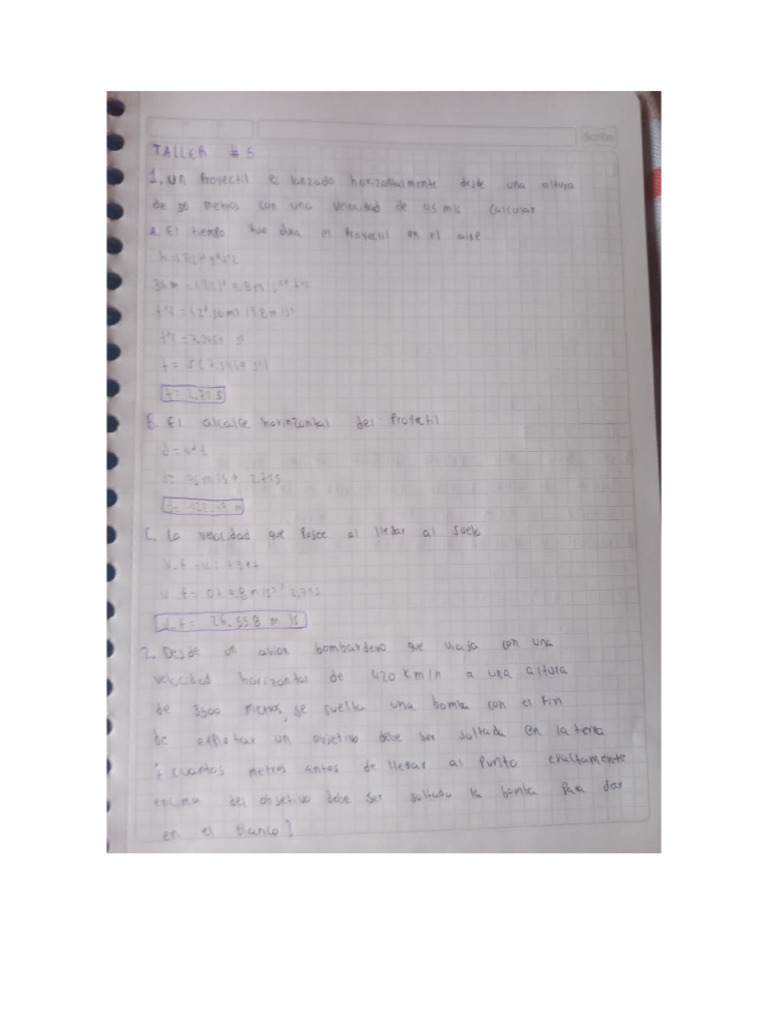 Scribe
TALLER # 5
1. Un Proyectil es lanzado horizontalmente desde una altura
de 36 metros con una velocidad de 45 m/s calcular
A. El tiempo que dura el Proyectil en el aire
h=(1/2)* g*t^2
36 m = (1/2)* 9.8 m/s²* t^2
t^2 = (2* 36 m) / 9.8 m/s²
t^2 = 7.3469 s²
t = √(7.3469 s²)
t = 2.71 s
B. El alcalse horinzontal del Proyectil
d = v*t
2.71s
C. La velocidad que Posee al llegar al suelo
v_f = 0+ 9.8 m/s²* 2.71s
v_f = 26.558 m/s
2. Desde un avion bombardero que viaja con una
velocidad horizontal de 420 Km/h a una altura
de 3500 metros, se suelta una bomba con el Fin
de explotar un objetivo debe ser soltada en la tierra
¿ cuantos metros antes de llegar al Punto exactamente
encima del objetivo debe ser soltada la bomba Para dar
en el blanco?